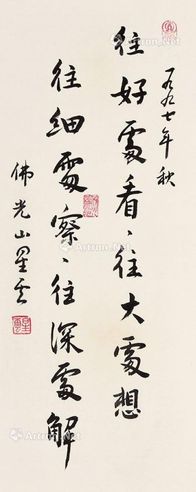 一九九七年秋
往好處看、往大處想
往細處察、往深處解
佛光山星云